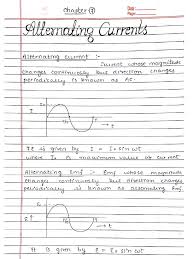 Chapter (7)
Date
Page
Alternating Currents
Alternating Current :-
Current whose magnitude
changes continuously but direction changes
periodically is known as AC.
I
t
It is given by I = I₀ sin ωt
where I₀ is maximum value of current
Alternating Emf :- Emf whose magnitude
changes continuously but direction changes
periodically is known as alternating Emf.
E₀
t
It is given by E = E₀ sin ωt